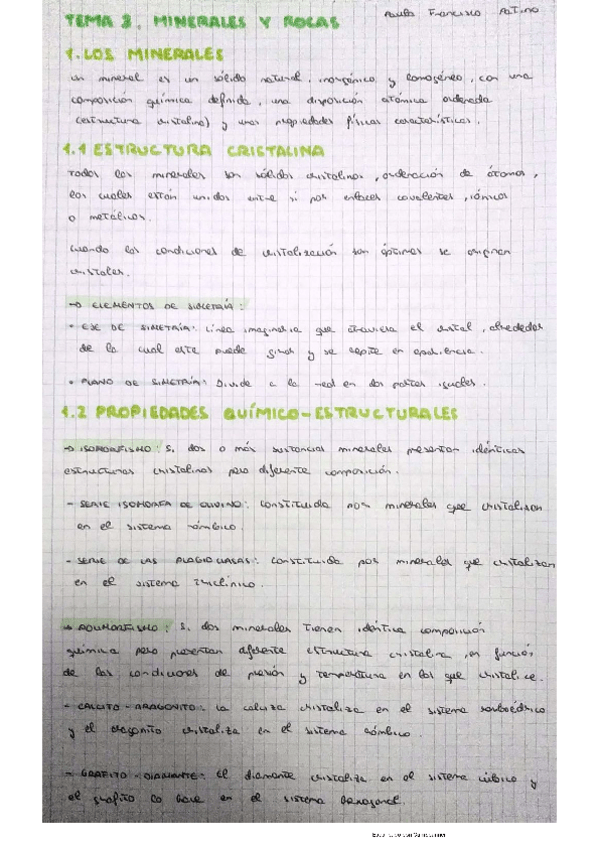 Paula Francisco Patino
TEMA 3. MINERALES Y ROCAS
1. LOS MINERALES
un mineral es un sólido natural, inorgánico y homogéneo, con una
composición química definida, una disposición atómica ordenada
(estructura cristalina) y unas propiedades físicas características.
1.1 ESTRUCTURA CRISTALINA
Todos los minerales son sólidos cristalinos, ordenación de átomos,
los cuales están unidos entre sí por enlaces covalentes, iónicos
o metálicos.
Cuando las condiciones de cristalización son óptimas se originan
cristales.
→ ELEMENTOS DE SIMETRÍA:
• EJE DE SIMETRÍA: línea imaginaria que atraviesa el cristal, alrededor
de la cual este puede girar y se repite en apariencia.
• PLANO DE SIMETRÍA: Divide a la red en dos partes iguales.
1.2 PROPIEDADES QUÍMICO-ESTRUCTURALES
→ ISOMORFISMO: Si dos o más sustancias minerales presentan idénticas
estructuras cristalinas pero diferente composición.
- SERIE ISOMORFA DE OLIVINO: Constituida por minerales que cristalizan
en el sistema rómbico.
- SERIE DE LAS PLAGIOCLASAS: Constituida por minerales que cristalizan
en el sistema triclínico.
→ POLIMORFISMO: Si dos minerales tienen idéntica composición
química pero presentan diferente estructura cristalina, en función
de las condiciones de presión y temperatura en las que cristalice.
- CALCITO-ARAGONITO: la calcita cristaliza en el sistema romboédrico
y el aragonito cristaliza en el sistema rómbico.
- GRAFITO-DIAMANTE: El diamante cristaliza en el sistema cúbico y
el grafito lo hace en el sistema hexagonal.